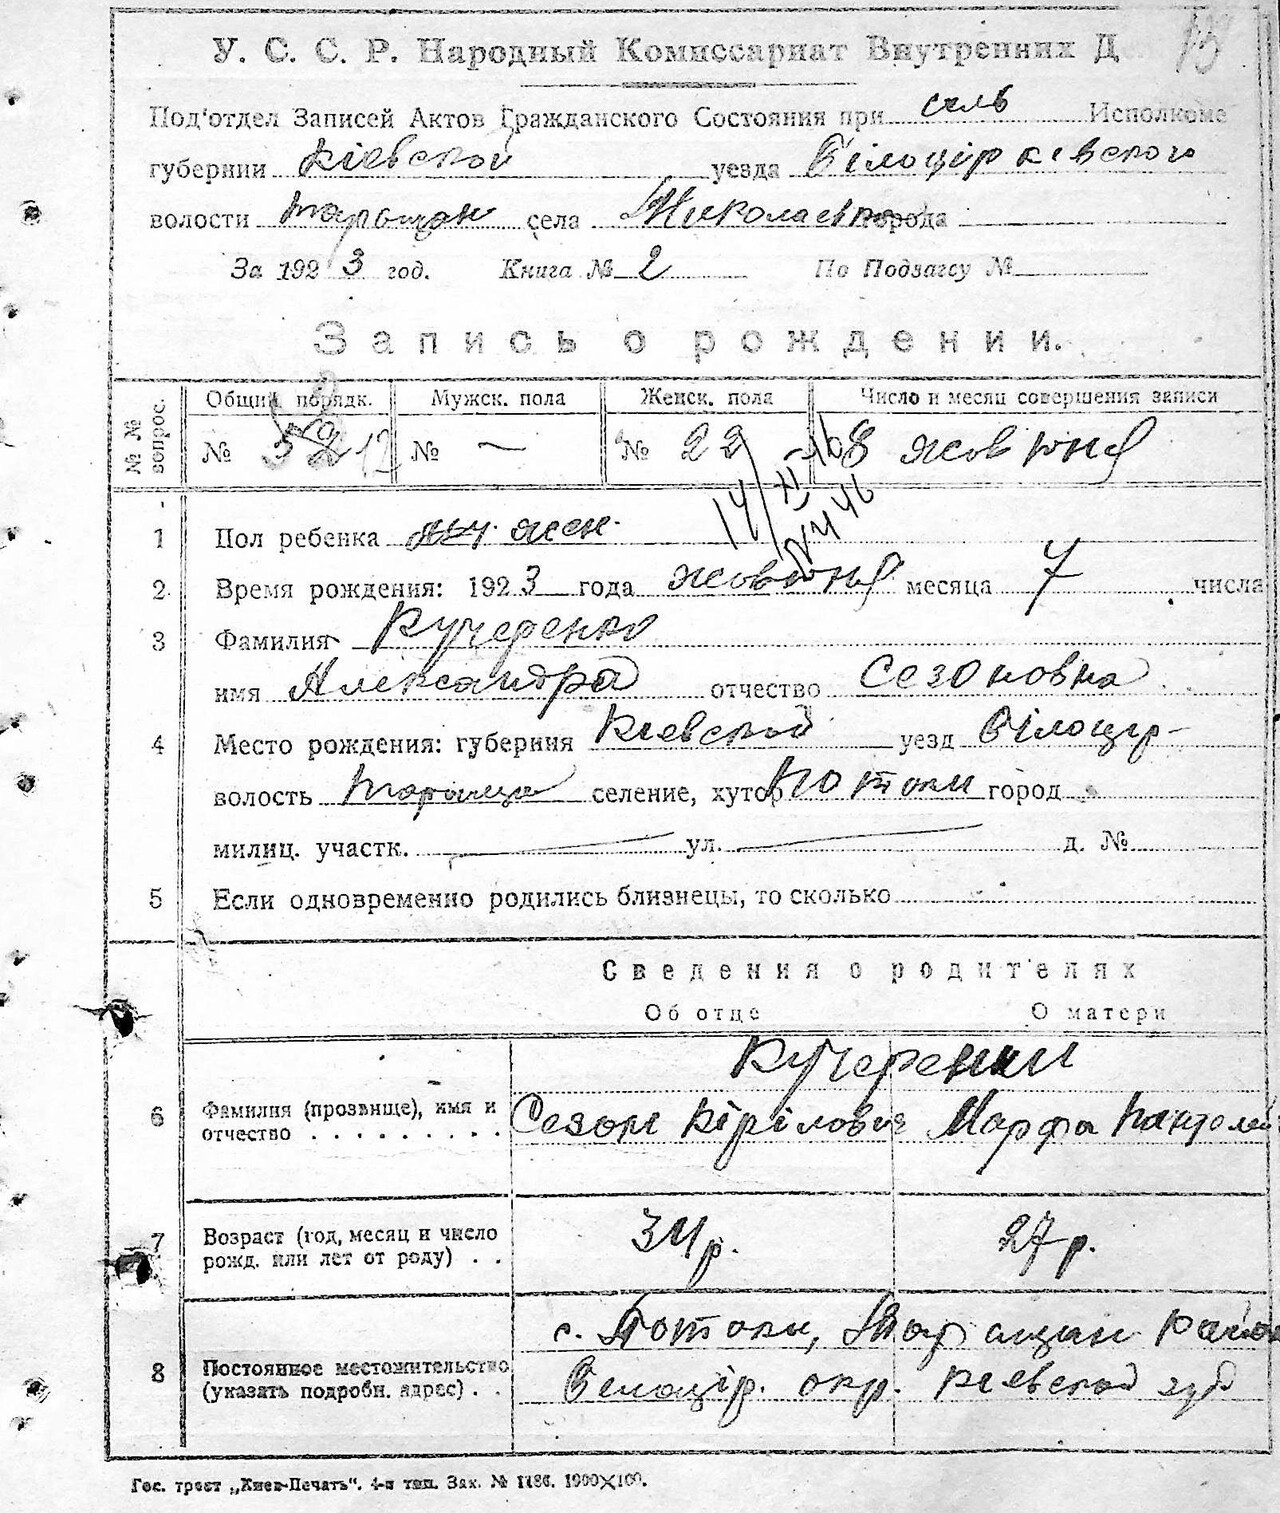 У. С. С. Р. Народный Комиссариат Внутренних Д
Под'отдел Записей Актов Гражданского Состояния при сель Исполкоме
губернии Кіевской уезда Білоцірківского
волости Таращан села Николаевка города
За 1923 год. Книга № 2 По Подзагсу №
Запись о рождении.
№ № вопрос. Общий порядк. Мужск. пола Женск. пола Число и месяц совершения записи
№ № — № 22 8 жовтня
1 Пол ребенка жен.
2 Время рождения: 1923 года жовтня месяца 7 числа
3 Фамилия Кучеренко
имя Александра отчество Сезоновна
4 Место рождения: губерния Кіевской уезд Білоцір-
волость Таращан селение, хутор Потоки город
милиц. участк. ул. д. №
5 Если одновременно родились близнецы, то сколько
Сведения о родителях
Об отце О матери
Кучеренки
6 Фамилия (прозвище), имя и отчество Сезон Кірілович Марфа Пантелей
7 Возраст (год, месяц и число рожд. или лет от роду) 34 р. 27 р.
с. Потоки, Таращан район
8 Постоянное местожительство (указать подробн. адрес) Белоцір. окр. Кіевской губ
Гос. трест „Киев-Печать". 4-я тип. Зак. № 1186. 1000×100.